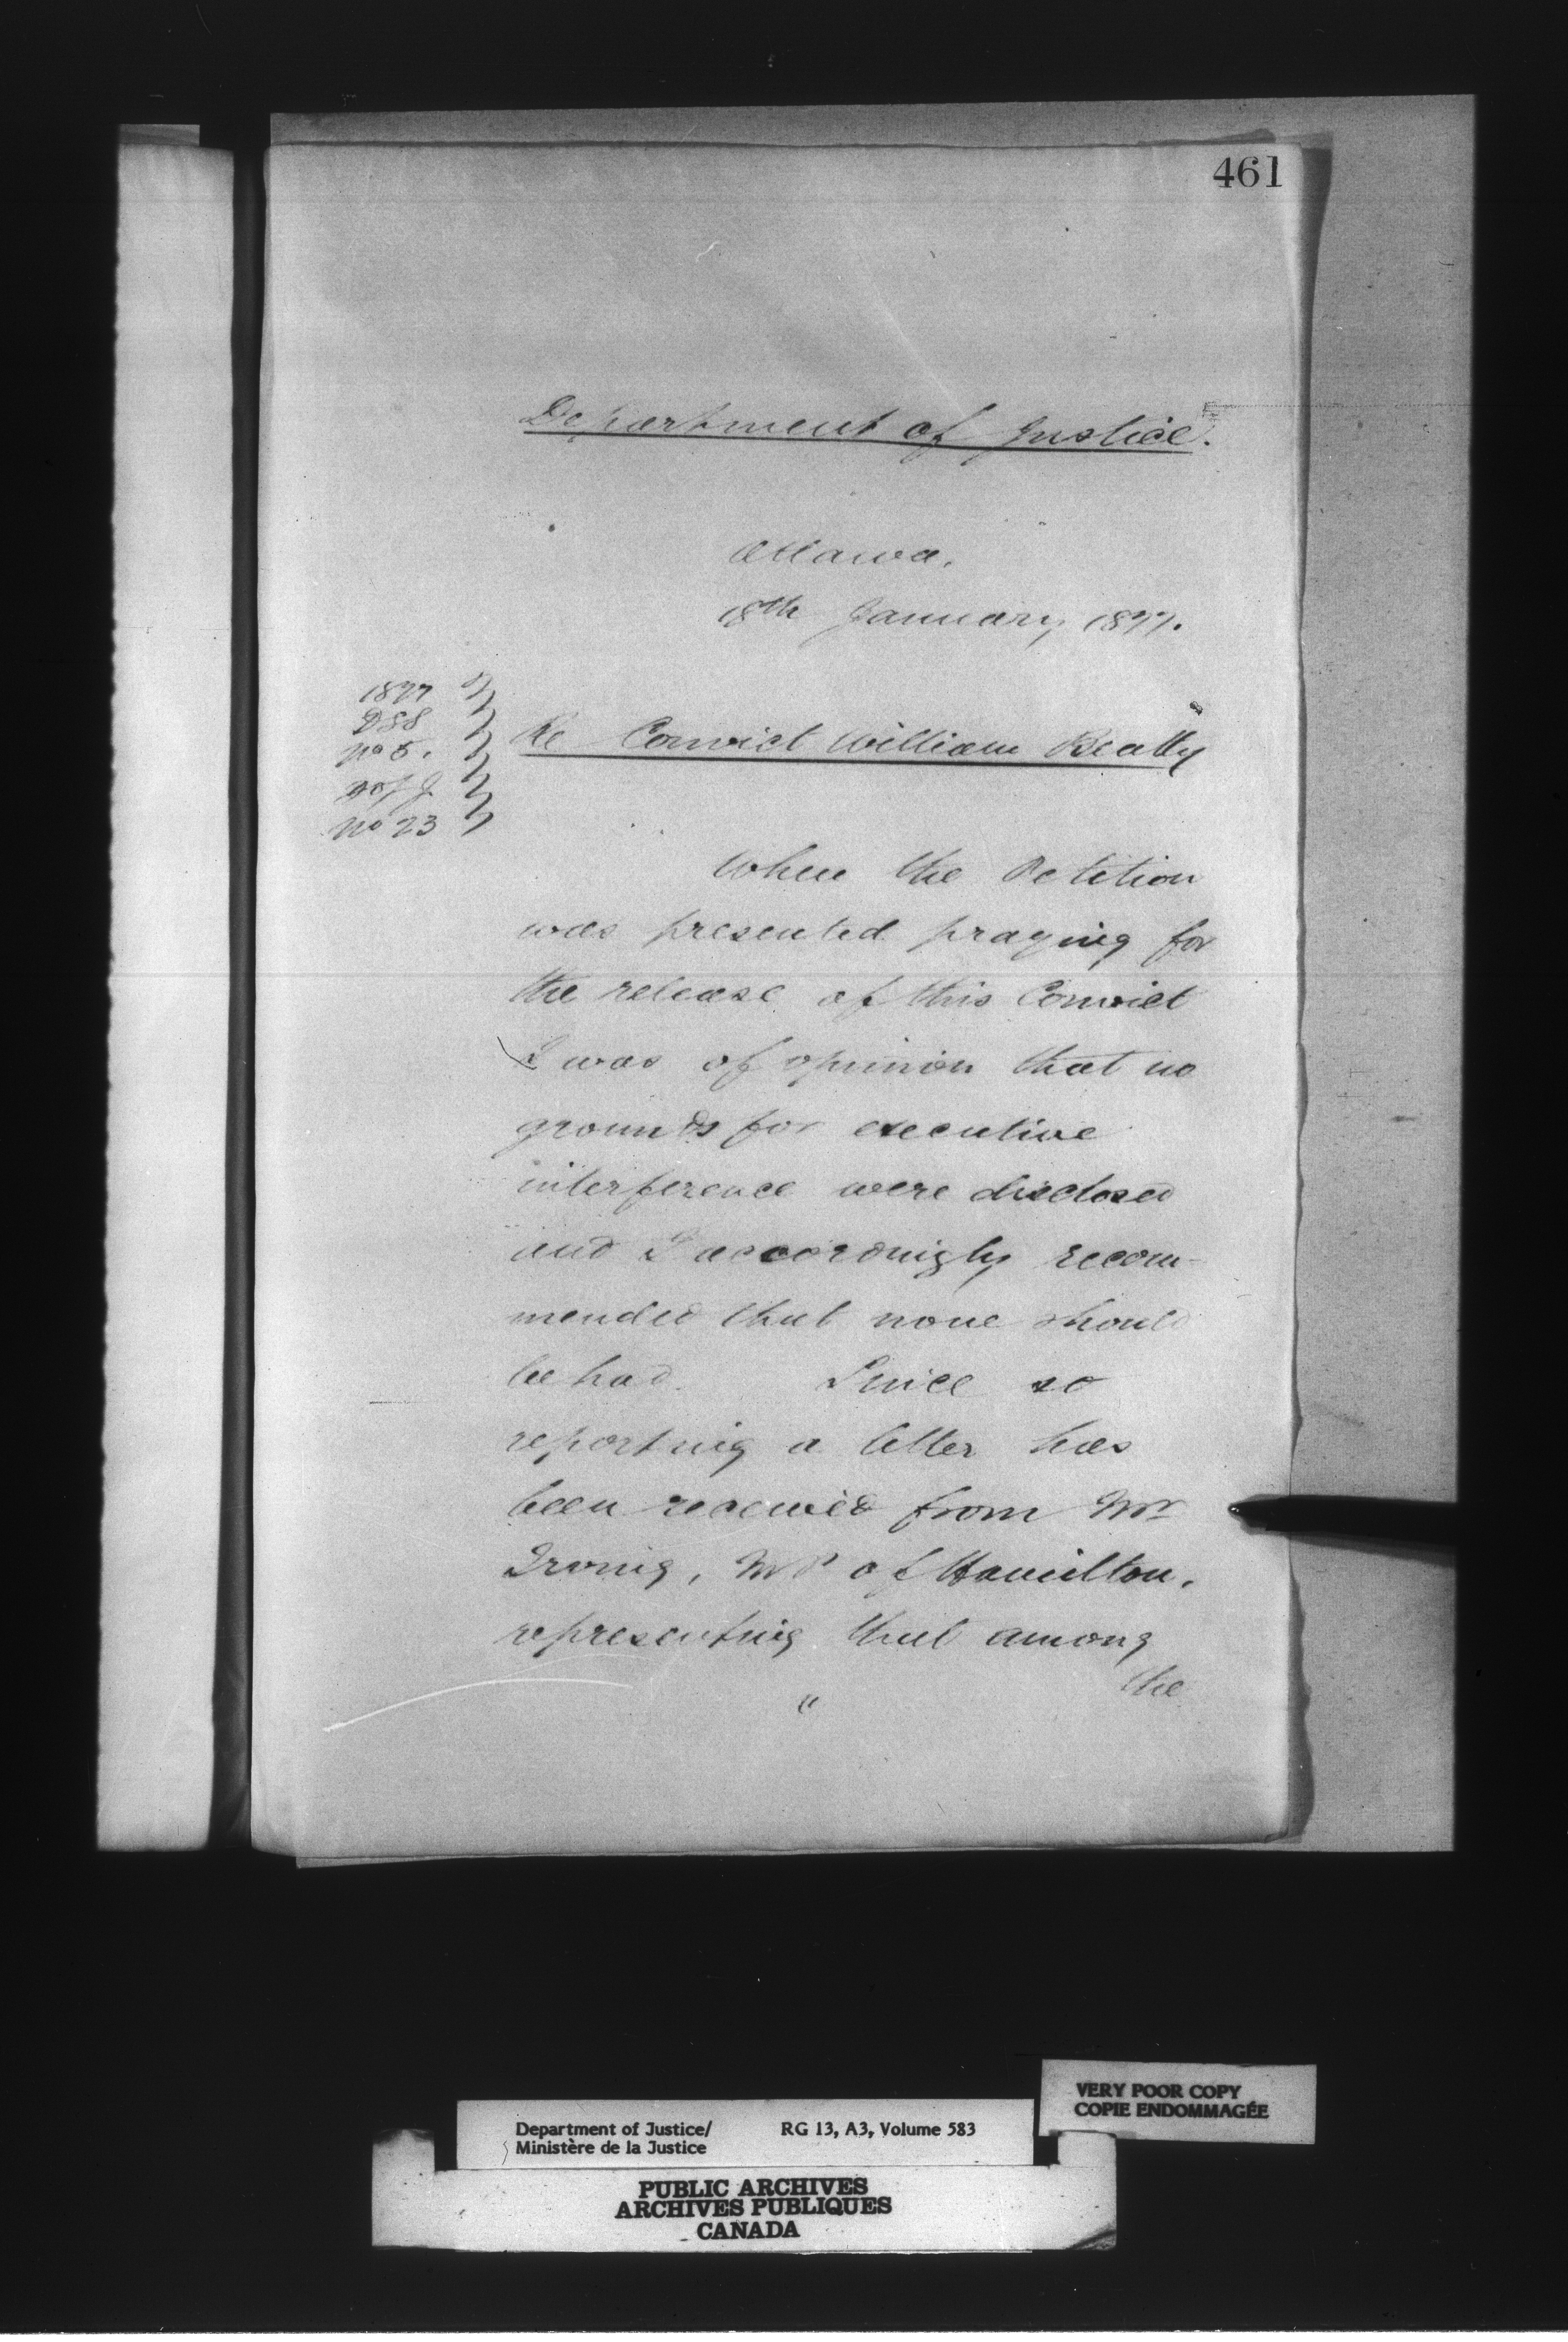 461
Department of Justice.
Ottawa,
18th January, 1877.
1877
DSS
No 5.
D of J
No 23
Re Convict William Beatty
When the Petition
was presented praying for
the release of this Convict
I was of opinion that no
grounds for executive
interference were disclosed
and I accordingly recom-
mended that none should
be had. Since so
reporting a letter has
been received from Mr
Irving, MP of Hamilton,
representing that among
the
"
VERY POOR COPY
COPIE ENDOMMAGÉE
Department of Justice/ RG 13, A3, Volume 583
Ministère de la Justice
PUBLIC ARCHIVES
ARCHIVES PUBLIQUES
CANADA